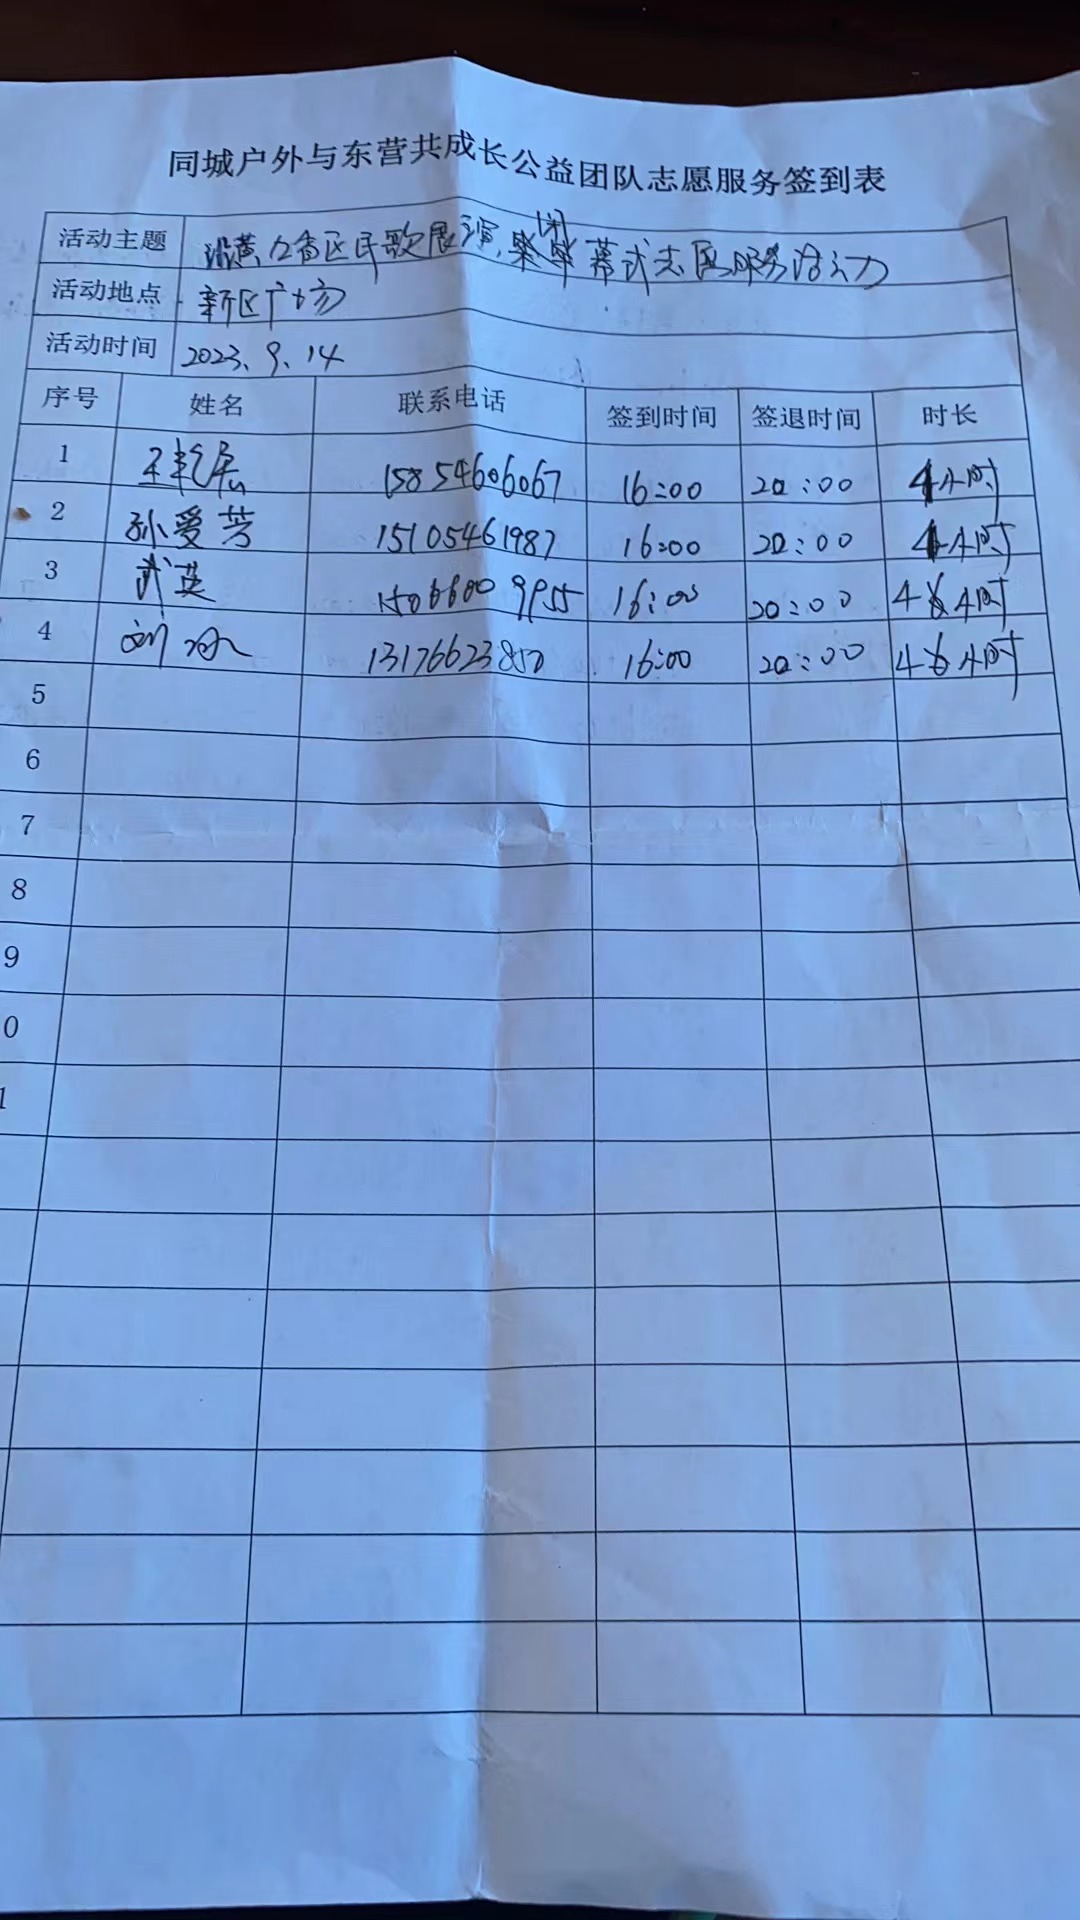 同城户外与东营共成长公益团队志愿服务签到表
活动主题 沿黄九省区民歌展演, 闭幕式志愿服务活动
活动地点 新区广场
活动时间 2023.9.14
序号 姓名 联系电话 签到时间 签退时间 时长
1 王艳 15854606067 16:00 20:00 4小时
2 孙爱芳 15105461987 16:00 20:00 4小时
3 武英 15066009955 16:00 20:00 4小时
4 刘冰 13176623857 16:00 20:00 4小时
5
6
7
8
9
0
1